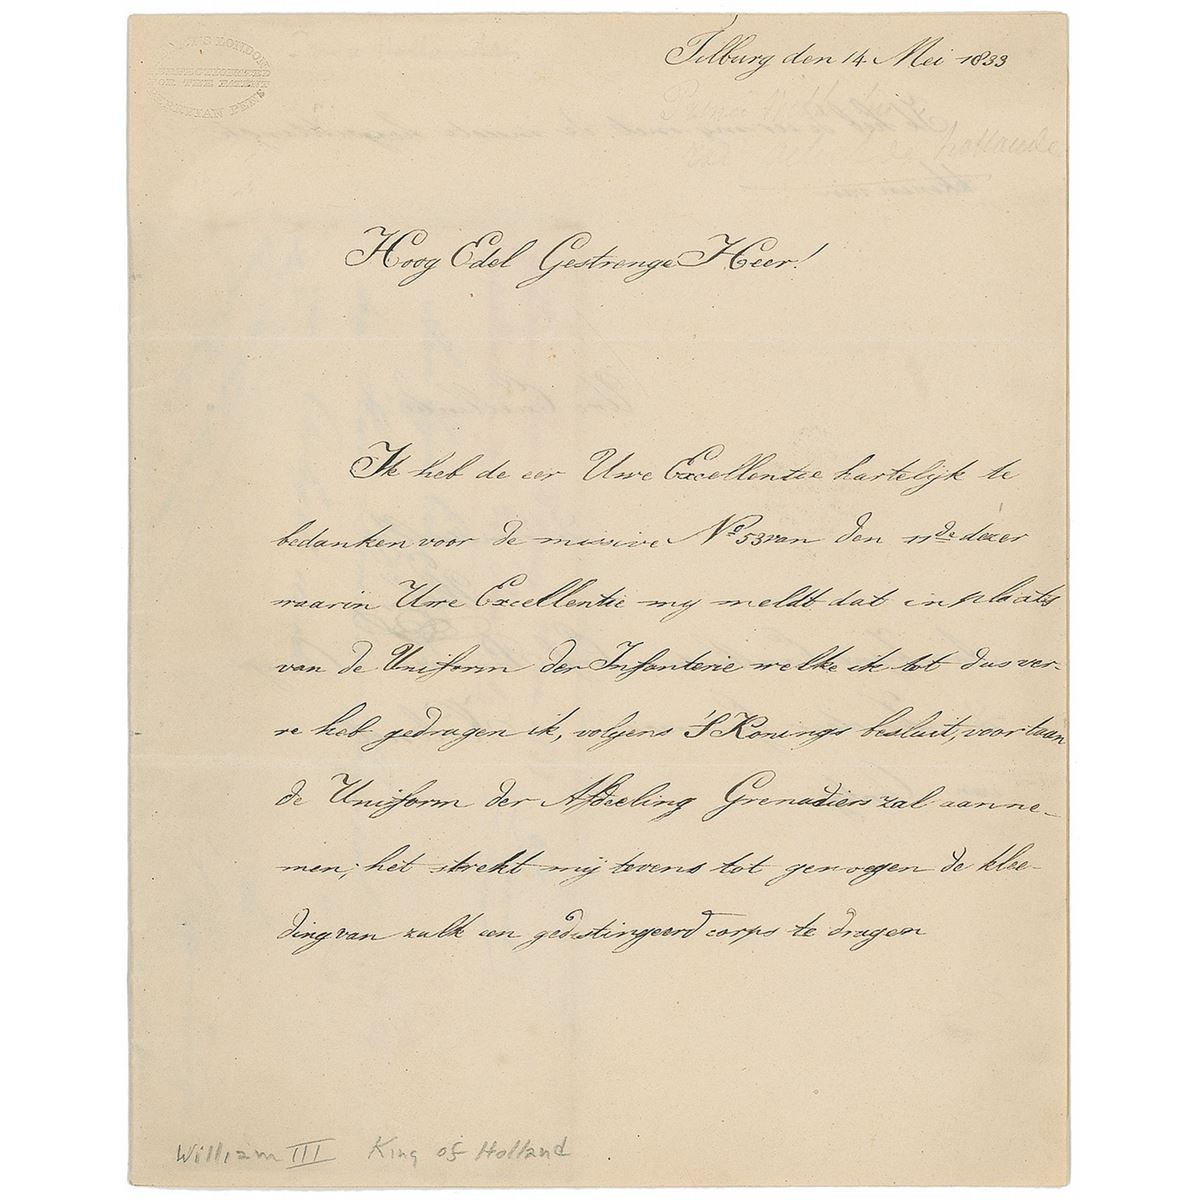 LONDON
PERFECTIONATED
FOR THE PATENT
PERRYIAN PENS
Tilburg den 14 Mei 1833
Hollande
Hoog Edel Gestrenge Heer!
Ik heb de eer Uwe Excellentie hartelijk te
bedanken voor de missive No 53 van den 11de dezer
waarin Uwe Excellentie mij meldt dat in plaats
van de Uniform der Infanterie welke ik tot dus ver-
re heb gedragen ik, volgens 's Konings besluit, voortaan
de Uniform der Afdeeling Grenadiers zal aanne-
men; het strekt mij tevens tot genoegen de klee-
ding van zulk een gedistingeerd corps te dragen
William III King of Holland